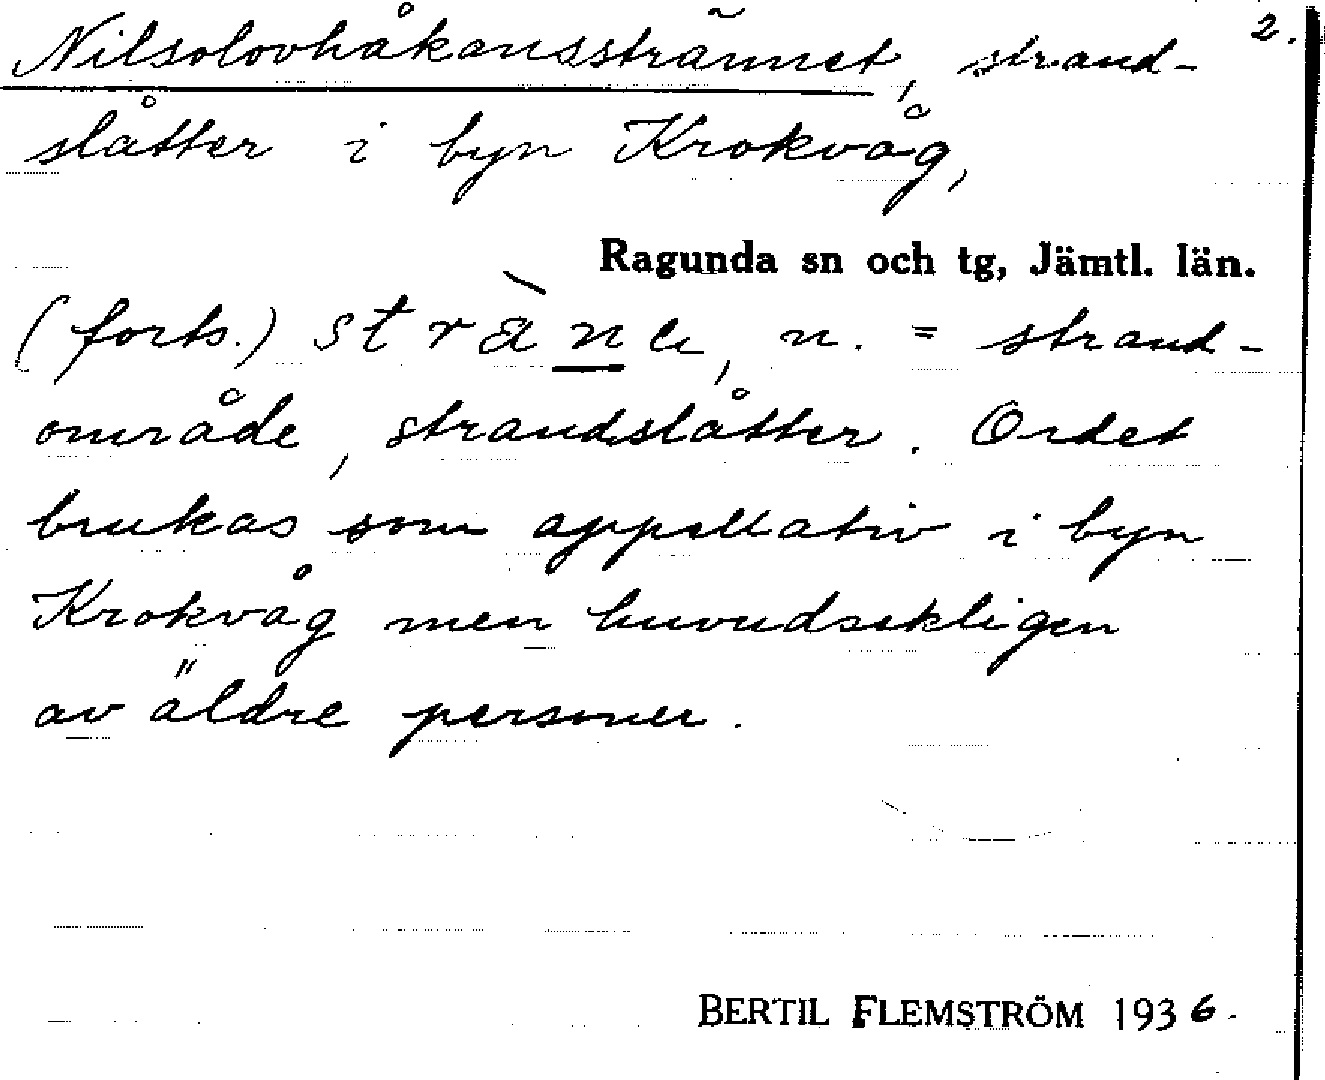 2.
Nilsolovhåkansstrännet, strand-
slåtter i byn Krokvåg,
Ragunda sn och tg, Jämtl. län.
(forts.) n. = strand-
område, strandslåtter. Ordet
brukas som appellativ i byn
Krokvåg men huvudsakligen
av äldre personer.
BERTIL FLEMSTRÖM 1936.